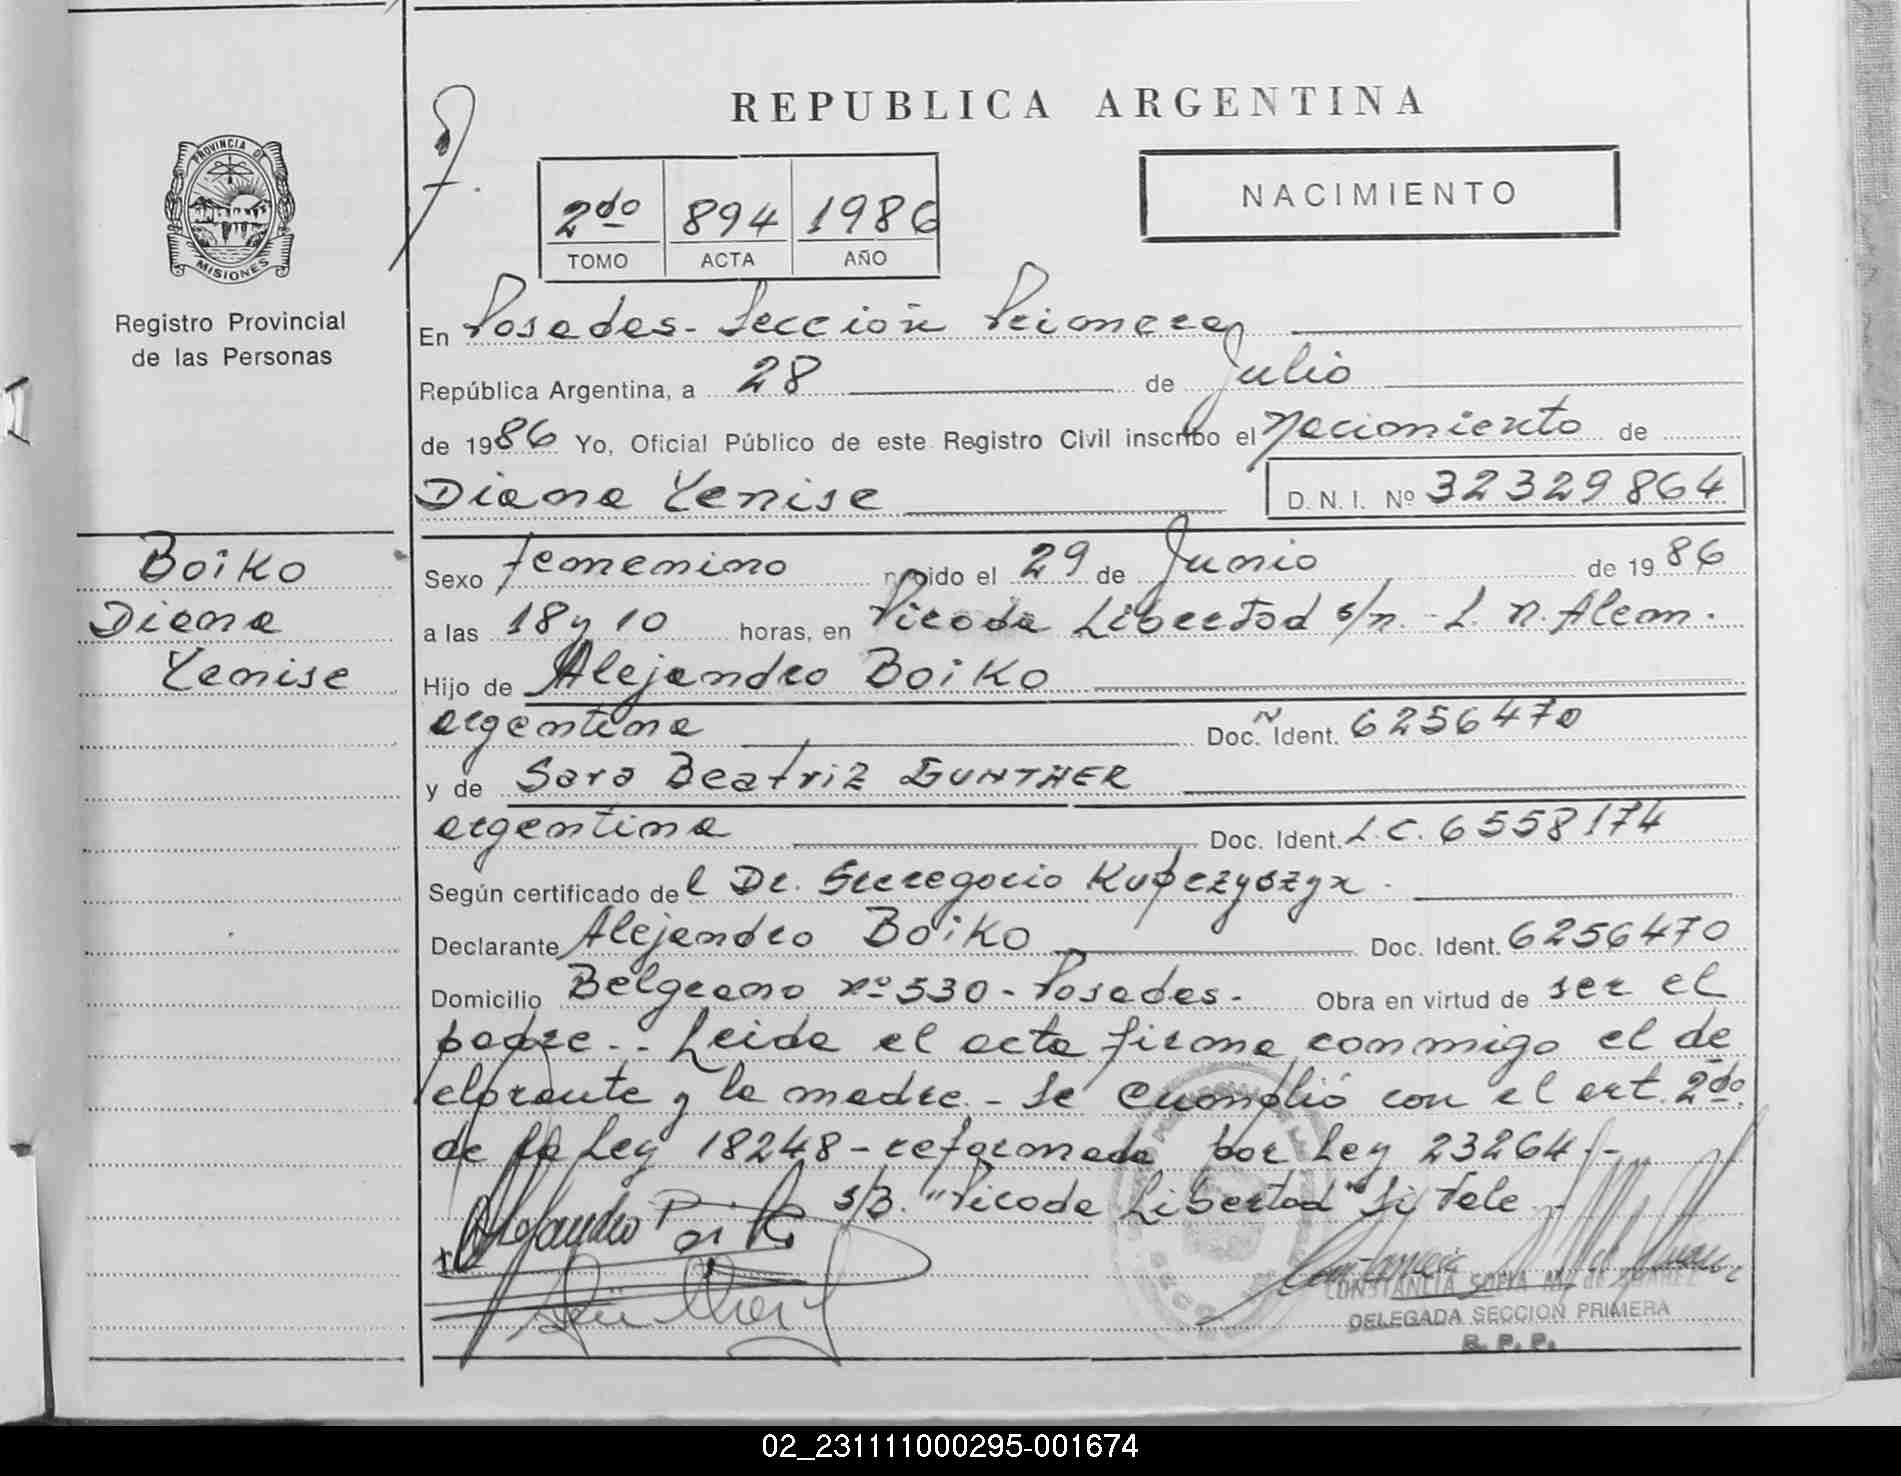 REPUBLICA ARGENTINA
PROVINCIA DE
MISIONES
Registro Provincial
de las Personas
2do 894 1986
TOMO ACTA AÑO
NACIMIENTO
En Posadas - Sección Primera
República Argentina, a 28 de Julio
de 1986 Yo, Oficial Público de este Registro Civil inscribo el Nacimiento de
Diana Yenise D. N. I. Nº 32329864
Boiko
Diana
Yenise
Sexo femenino nacido el 29 de Junio de 1986
a las 18 y 10 horas, en Picada Libertad s/n. - L. N. Alem.
Hijo de Alejandro Boiko
argentina Doc. Ident. 6256470
y de Sara Beatriz GUNTHER
argentina Doc. Ident. L.C. 6558174
Según certificado del Dr. Kupczyszyn.
Declarante Alejandro Boiko Doc. Ident. 6256470
Domicilio Belgrano nº 530 - Posadas. Obra en virtud de ser el
padre.- Leida el acta firma conmigo el de
clarante y la madre.- Se cumplió con el art. 2do.
de la Ley 18248 - reformada por Ley 23264.-
s/B. "Picada Libertad" Si Vale
CONSTANCIA SOFIA
DELEGADA SECCION PRIMERA
R. P. P.
02_231111000295-001674